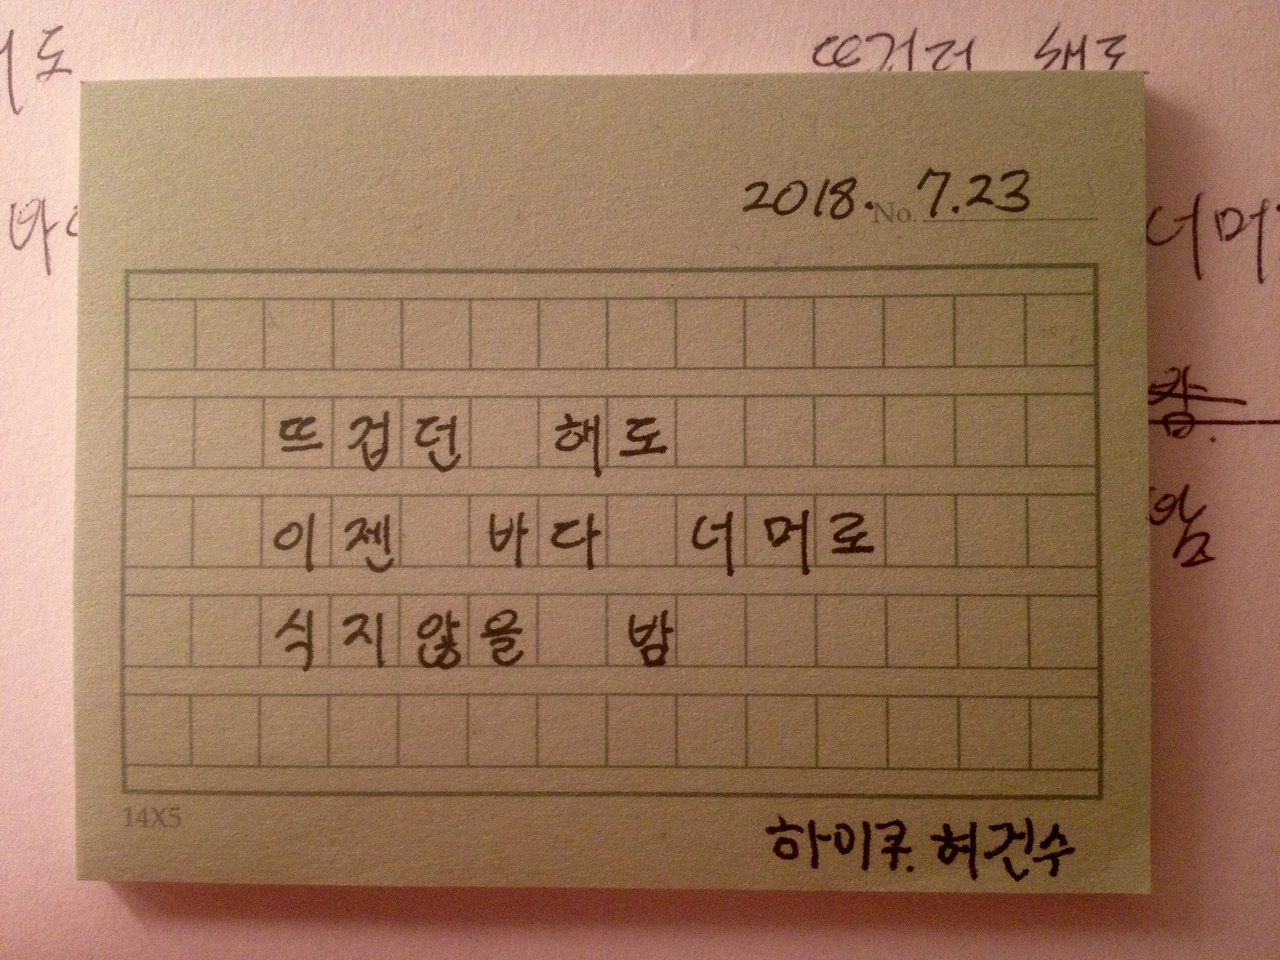 도 뜨거러 해도
2018. No. 7.23
너머
뜨겁던 해도
이젠 바다 너머로
식지않을 밤
14X5
하이쿠. 허건수